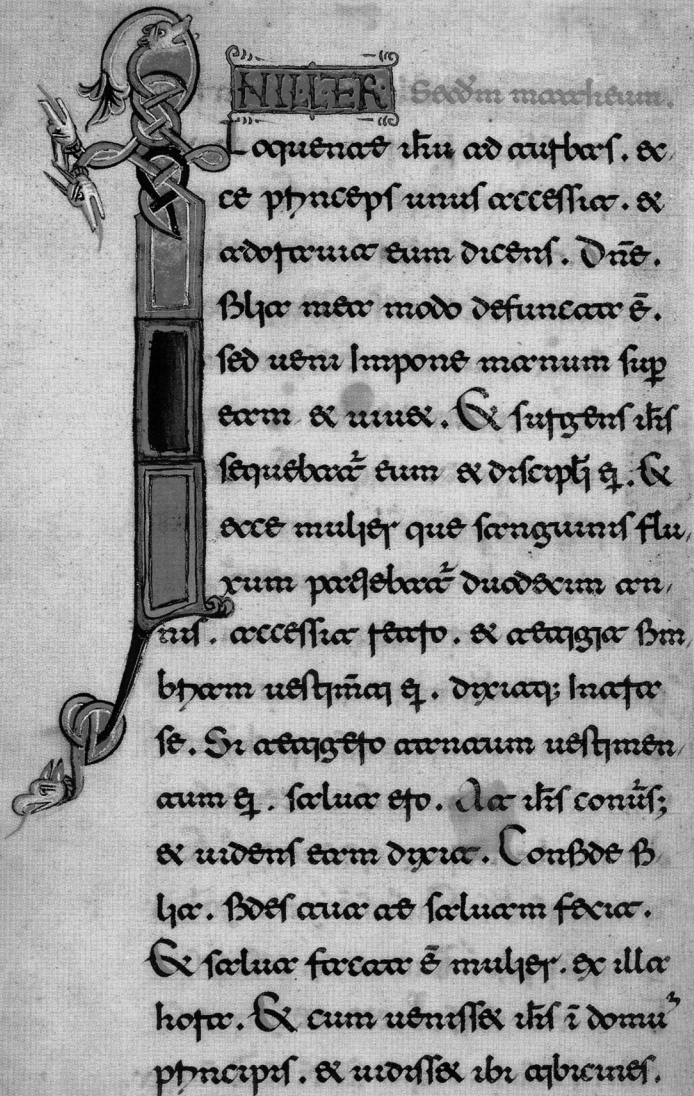 IN·ILL·TEꝐ Scdm matheum.
Loquente ihu ad turbas. ec
ce princeps unus accessit. &
adorauit eum dicens. Dñe.
filia mea modo defuncta ē.
sed ueni Impone manum sup̱
eam & uiu&. Et surgens ihs
sequebat̃ eum & discipłi ei̱. Et
ecce mulier que sanguinis flu,
xum patiebat̃ duodecim an,
nis. accessit retro. & tetigit fim,
briam uestim̃ti ei̱. dixitq; Intra
se. Si tetigero tantum uestimen,
tum ei̱. salua ero. At ihs conu̾s;
& uidens eam dixit. Confide fi
lia. fides tua te saluam fecit.
Et salua facta ē mulier. ex illa
hora. Et cum uenisset ihs ī domu̾
principis. & uidiss& ibi tibicines.